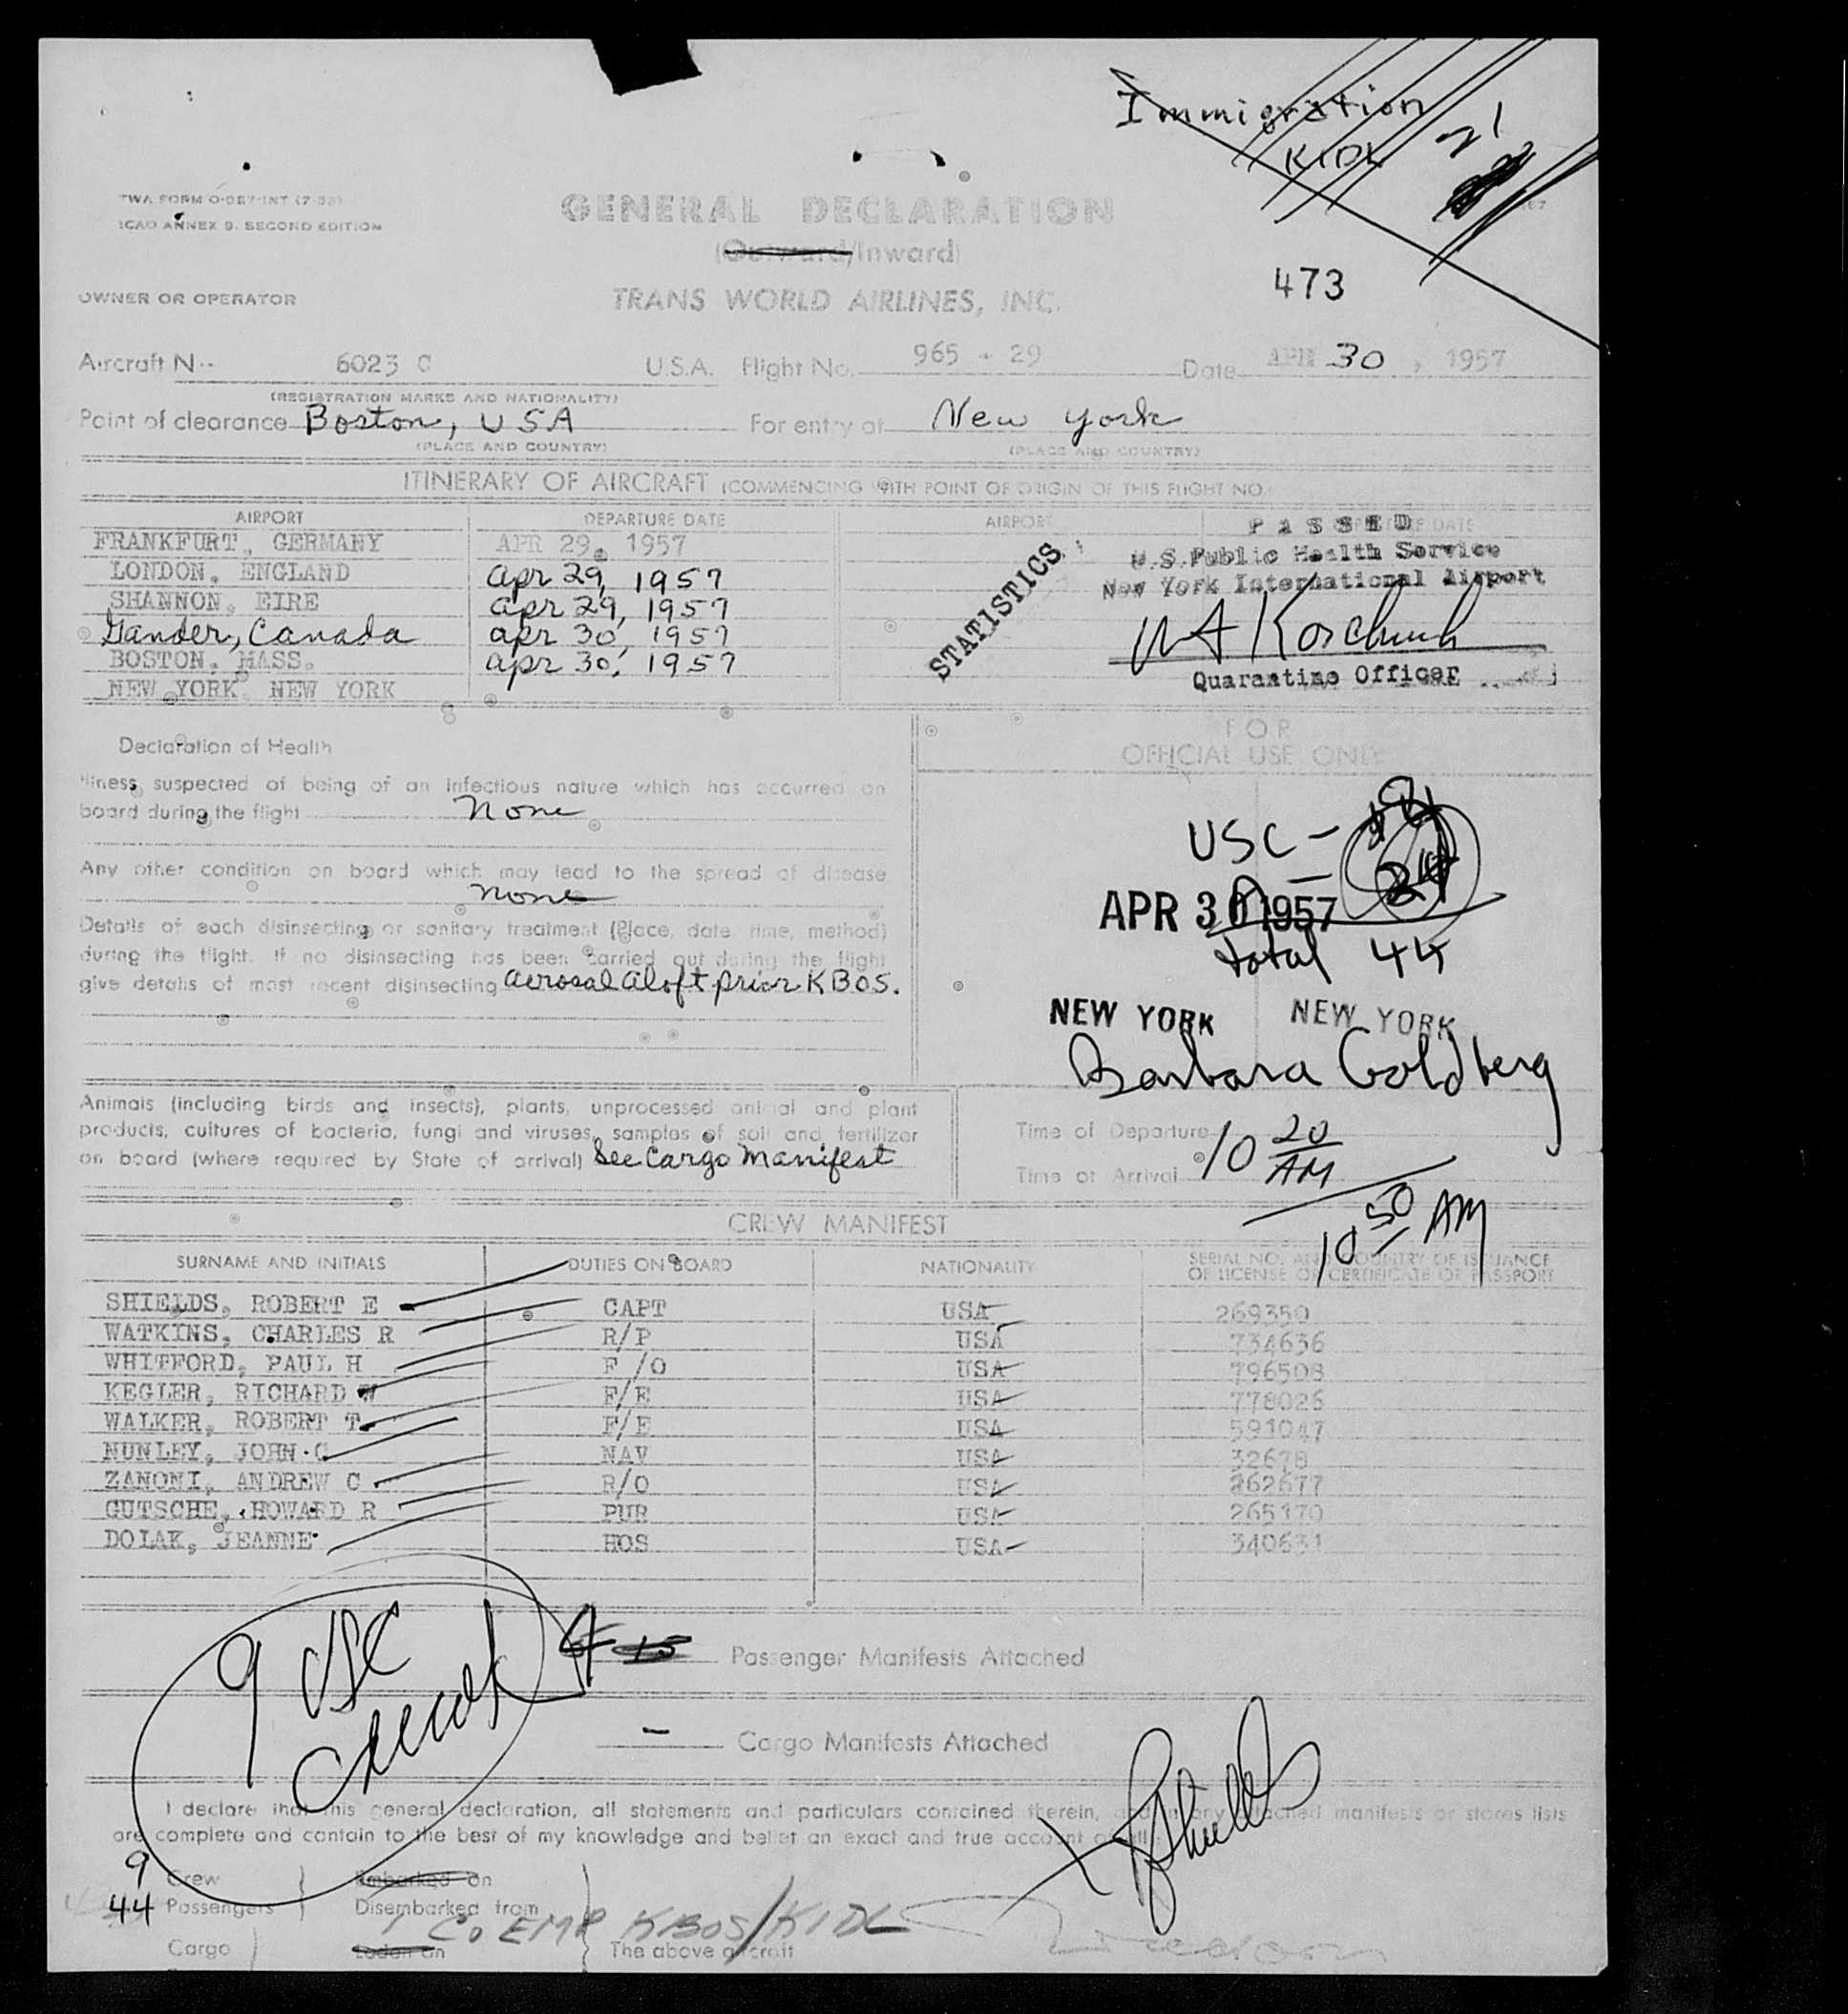 Immigration
KIDL
21
TWA FORM O-087-INT
ICAO ANNEX 9, SECOND EDITION
GENERAL DECLARATION
(Outward/Inward)
473
OWNER OR OPERATOR TRANS WORLD AIRLINES, INC.
Aircraft N-- 6023 C U.S.A. Flight No. 965 - 29 Date APR 30, 1957
(REGISTRATION MARKS AND NATIONALITY)
Point of clearance Boston, USA For entry at New York
(PLACE AND COUNTRY) (PLACE AND COUNTRY)
ITINERARY OF AIRCRAFT (COMMENCING WITH POINT OF ORIGIN OF THIS FLIGHT NO.)
AIRPORT DEPARTURE DATE AIRPORT DEPARTURE DATE
FRANKFURT, GERMANY APR 29, 1957
LONDON, ENGLAND Apr 29, 1957
SHANNON, EIRE Apr 29, 1957
Gander, Canada Apr 30, 1957
BOSTON, MASS. Apr 30, 1957
NEW YORK, NEW YORK
STATISTICS
PASSED
U.S. Public Health Service
New York International Airport
Quarantine Officer
Declaration of Health
Illness suspected of being of an infectious nature which has occurred on
board during the flight None
Any other condition on board which may lead to the spread of disease
None
Details of each disinsecting or sanitary treatment (Place, date, time, method)
during the flight. If no disinsecting has been carried out during the flight
give details of most recent disinsecting Aerosal Aloft prior KBOS.
FOR
OFFICIAL USE ONLY
USC -
APR 30 1957
total 44
NEW YORK NEW YORK
Barbara Goldberg
Animals (including birds and insects), plants, unprocessed animal and plant
products, cultures of bacteria, fungi and viruses, samples of soil and fertilizer
on board (where required by State of arrival) See Cargo Manifest
Time of Departure 10 20 AM
Time of Arrival 10 50 AM
CREW MANIFEST
SURNAME AND INITIALS DUTIES ON BOARD NATIONALITY SERIAL NO. AND COUNTRY OF ISSUANCE
OF LICENSE OR CERTIFICATE OR PASSPORT
SHIELDS, ROBERT E CAPT USA 269350
WATKINS, CHARLES R R/P USA 734636
WHITFORD, PAUL H F/O USA 796508
KEGLER, RICHARD W F/E USA 778026
WALKER, ROBERT T F/E USA 591047
NUNLEY, JOHN C NAV USA 32678
ZANONI, ANDREW C R/O USA 262677
GUTSCHE, HOWARD R PUR USA 265170
DOLAK, JEANNE HOS USA 340631
9 USC
4 15 Passenger Manifests Attached
- Cargo Manifests Attached
I declare that this general declaration, all statements and particulars contained therein, and in any attached manifests or stores lists
are complete and contain to the best of my knowledge and belief an exact and true account of all
9 Crew Embarked on
44 Passengers Disembarked from
1 Co EMP KBOS/KIDL
Cargo Laden on The above aircraft